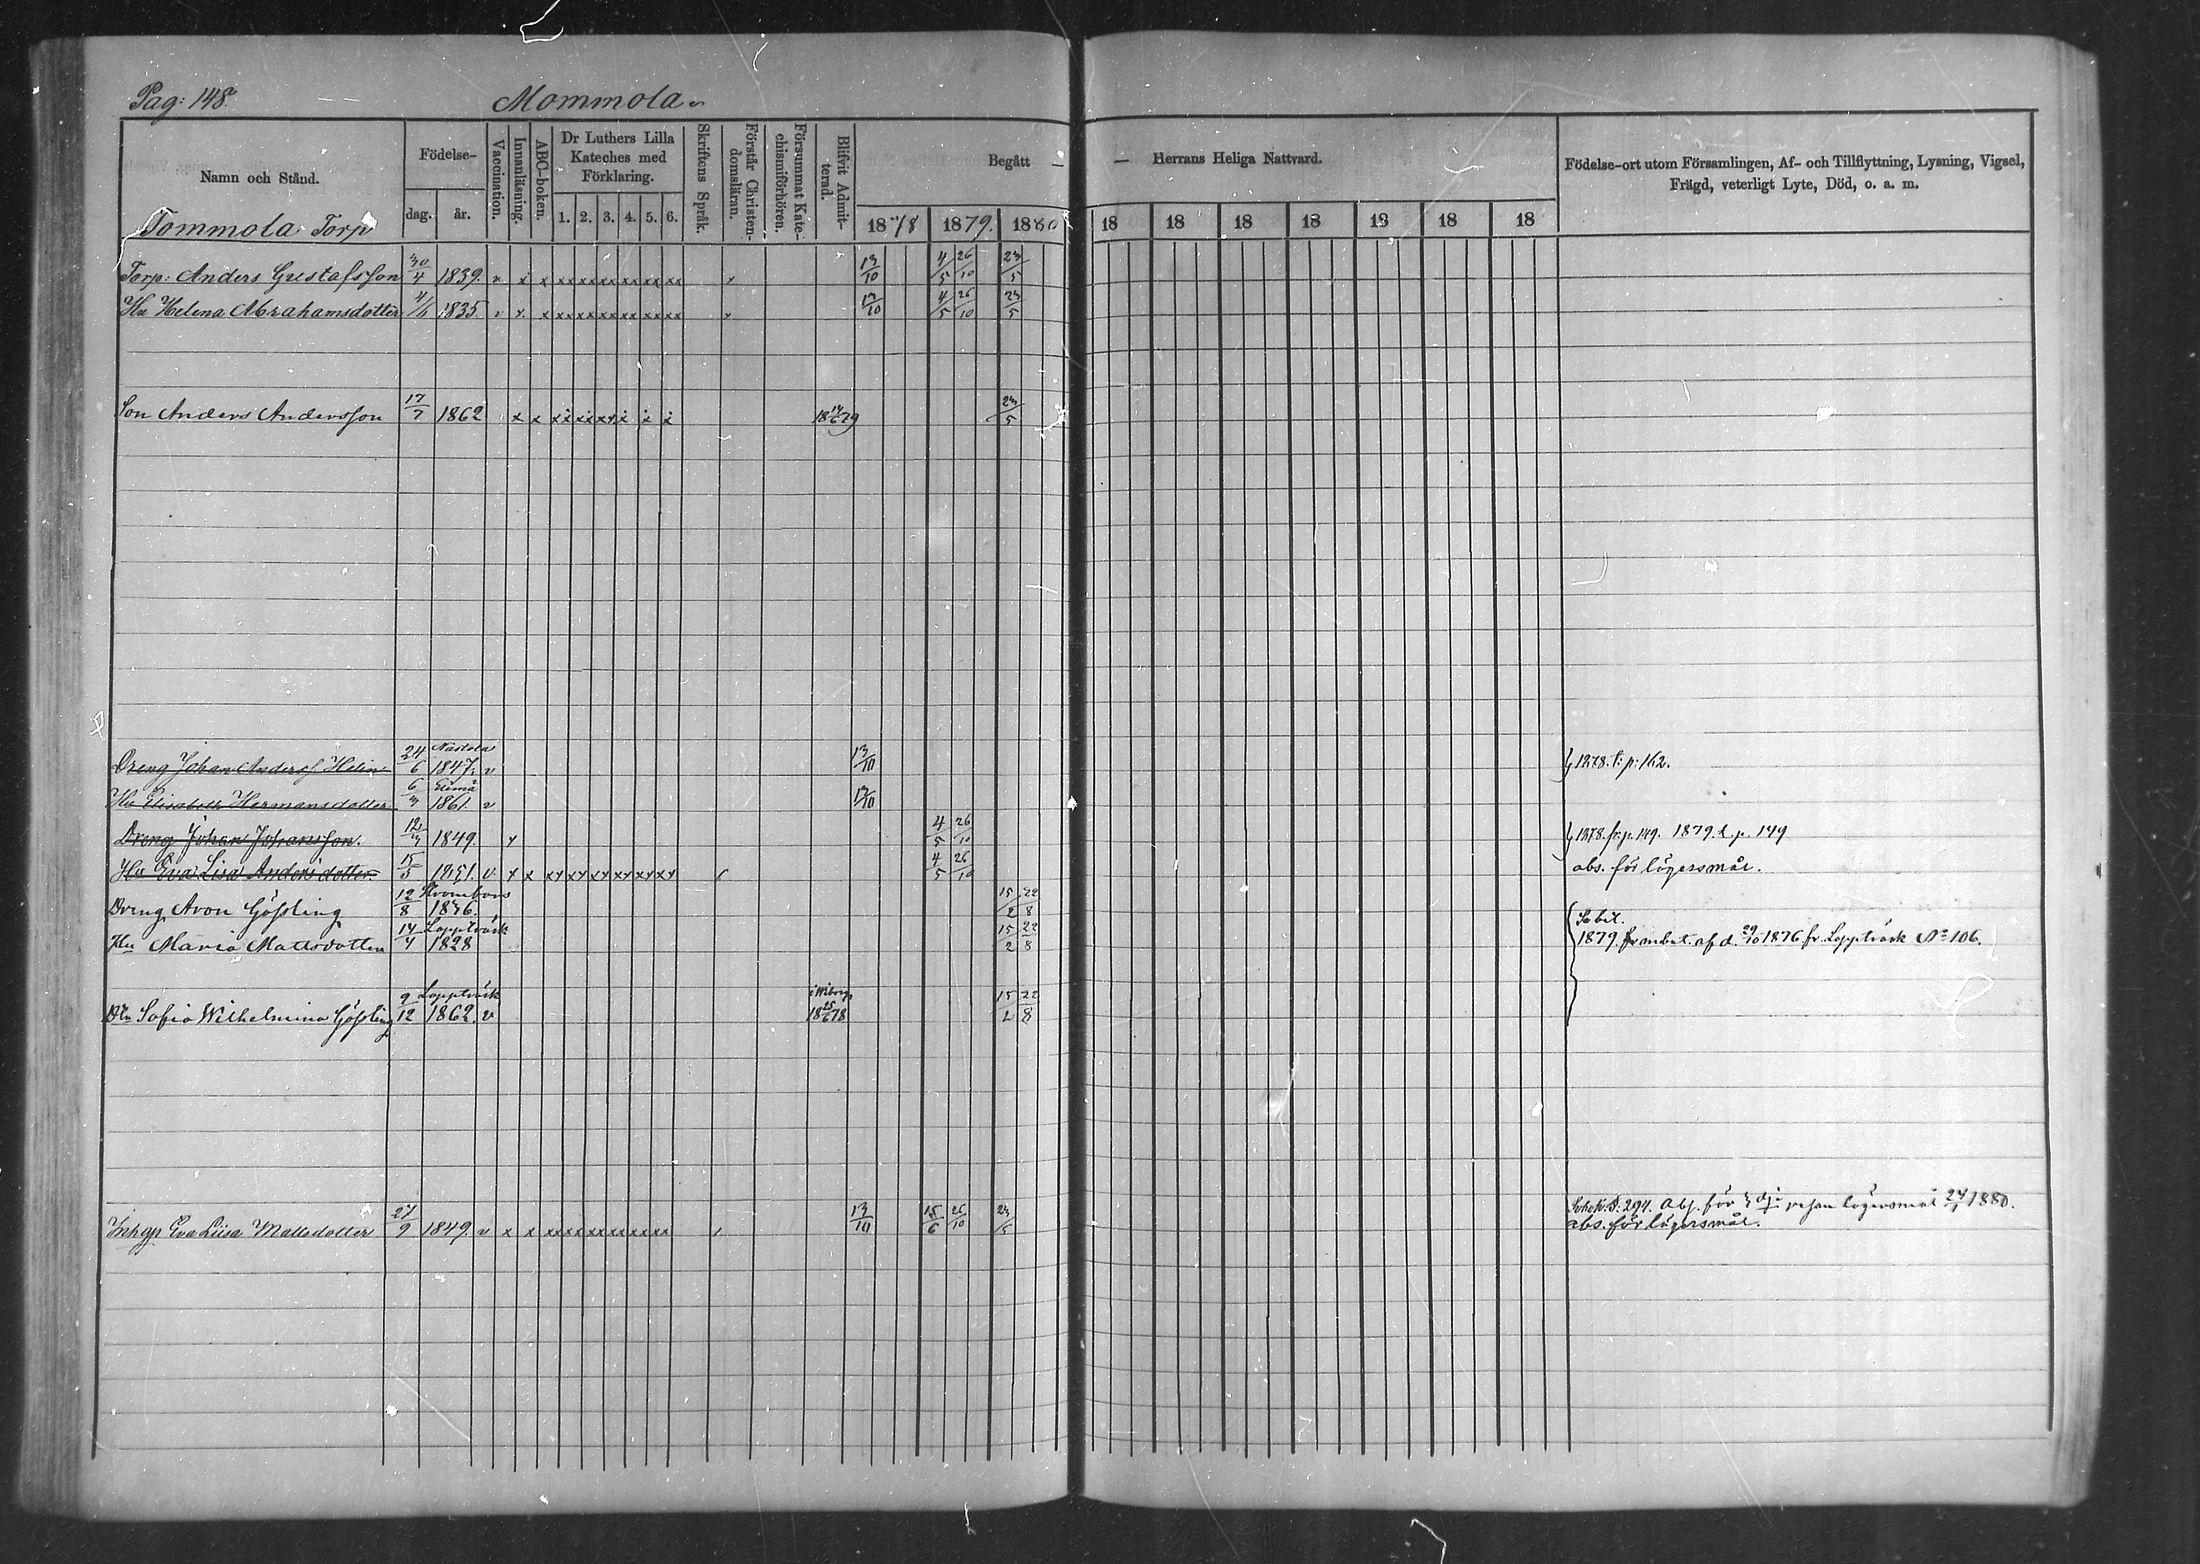 Pag: 148. Mommola
Namn och Stånd. Födelse- dag. år. Vaccination. Innanläsning. ABC-boken. Dr Luthers Lilla Kateches med Förklaring. 1. 2. 3. 4. 5. 6. Skriftens Språk. Förstår Christendomsläran. Försummat Katechismiförhören. Blifvit Admitterad. Begått — — Herrans Heliga Nattvard. Födelse-ort utom Församlingen, Af- och Tillflyttning, Lysning, Vigsel, Frägd, veterligt Lyte, Död, o. a. m.
1878 1879. 1880 18 18 18 18 18 18 18
Tommola Torp
Torp: Anders Gustafsson 30/4 1839. v x x xx xx xx xx xx xx 13/10 4/5 26/10 23/5
Hu Helena Abrahamsdotter 4/6 1835 v x x xx xx xx xx xx xx 13/10 4/5 26/10 23/5
Son Anders Andersson 17/7 1862 x x 23/5
Dreng Johan Anderss Helin 24/6 Nastola 1847. v 13/10 1878. t: p: 162.
Hu Elisabeth Hermansdotter 6/3 Elimä 1861. v 13/10
Dreng Johan Johansson. 12/3 1849. x 4/5 26/10 1878. fr. p. 149. 1879. t. p. 149
Hu Eva Lisa Andersdotter 15/5 1851. v. x x xx xx xx xx xx xx 4/5 26/10 abs. för lägersmål.
Dreng Aron Gössling 12/8 15/2 22/8
Hu Maria Mattsdotter 14/4 Lappträsk 1828 15/2 22/8 1879. fr 1876 fr. Lappträsk No 106.
Dtr Sofia Wilhelmina Gössling 9/12 Lappträsk 1862. v i Wiborg 18 25/6 78 15/2 22/8
Inhgn Eva Liisa Mattsdotter 27/9 1849. v x x xx xx xx xx xx xx 13/10 15/6 26/10 23/5 p. 294. Abs. för lägersmål 1880.
abs. för lägersmål.